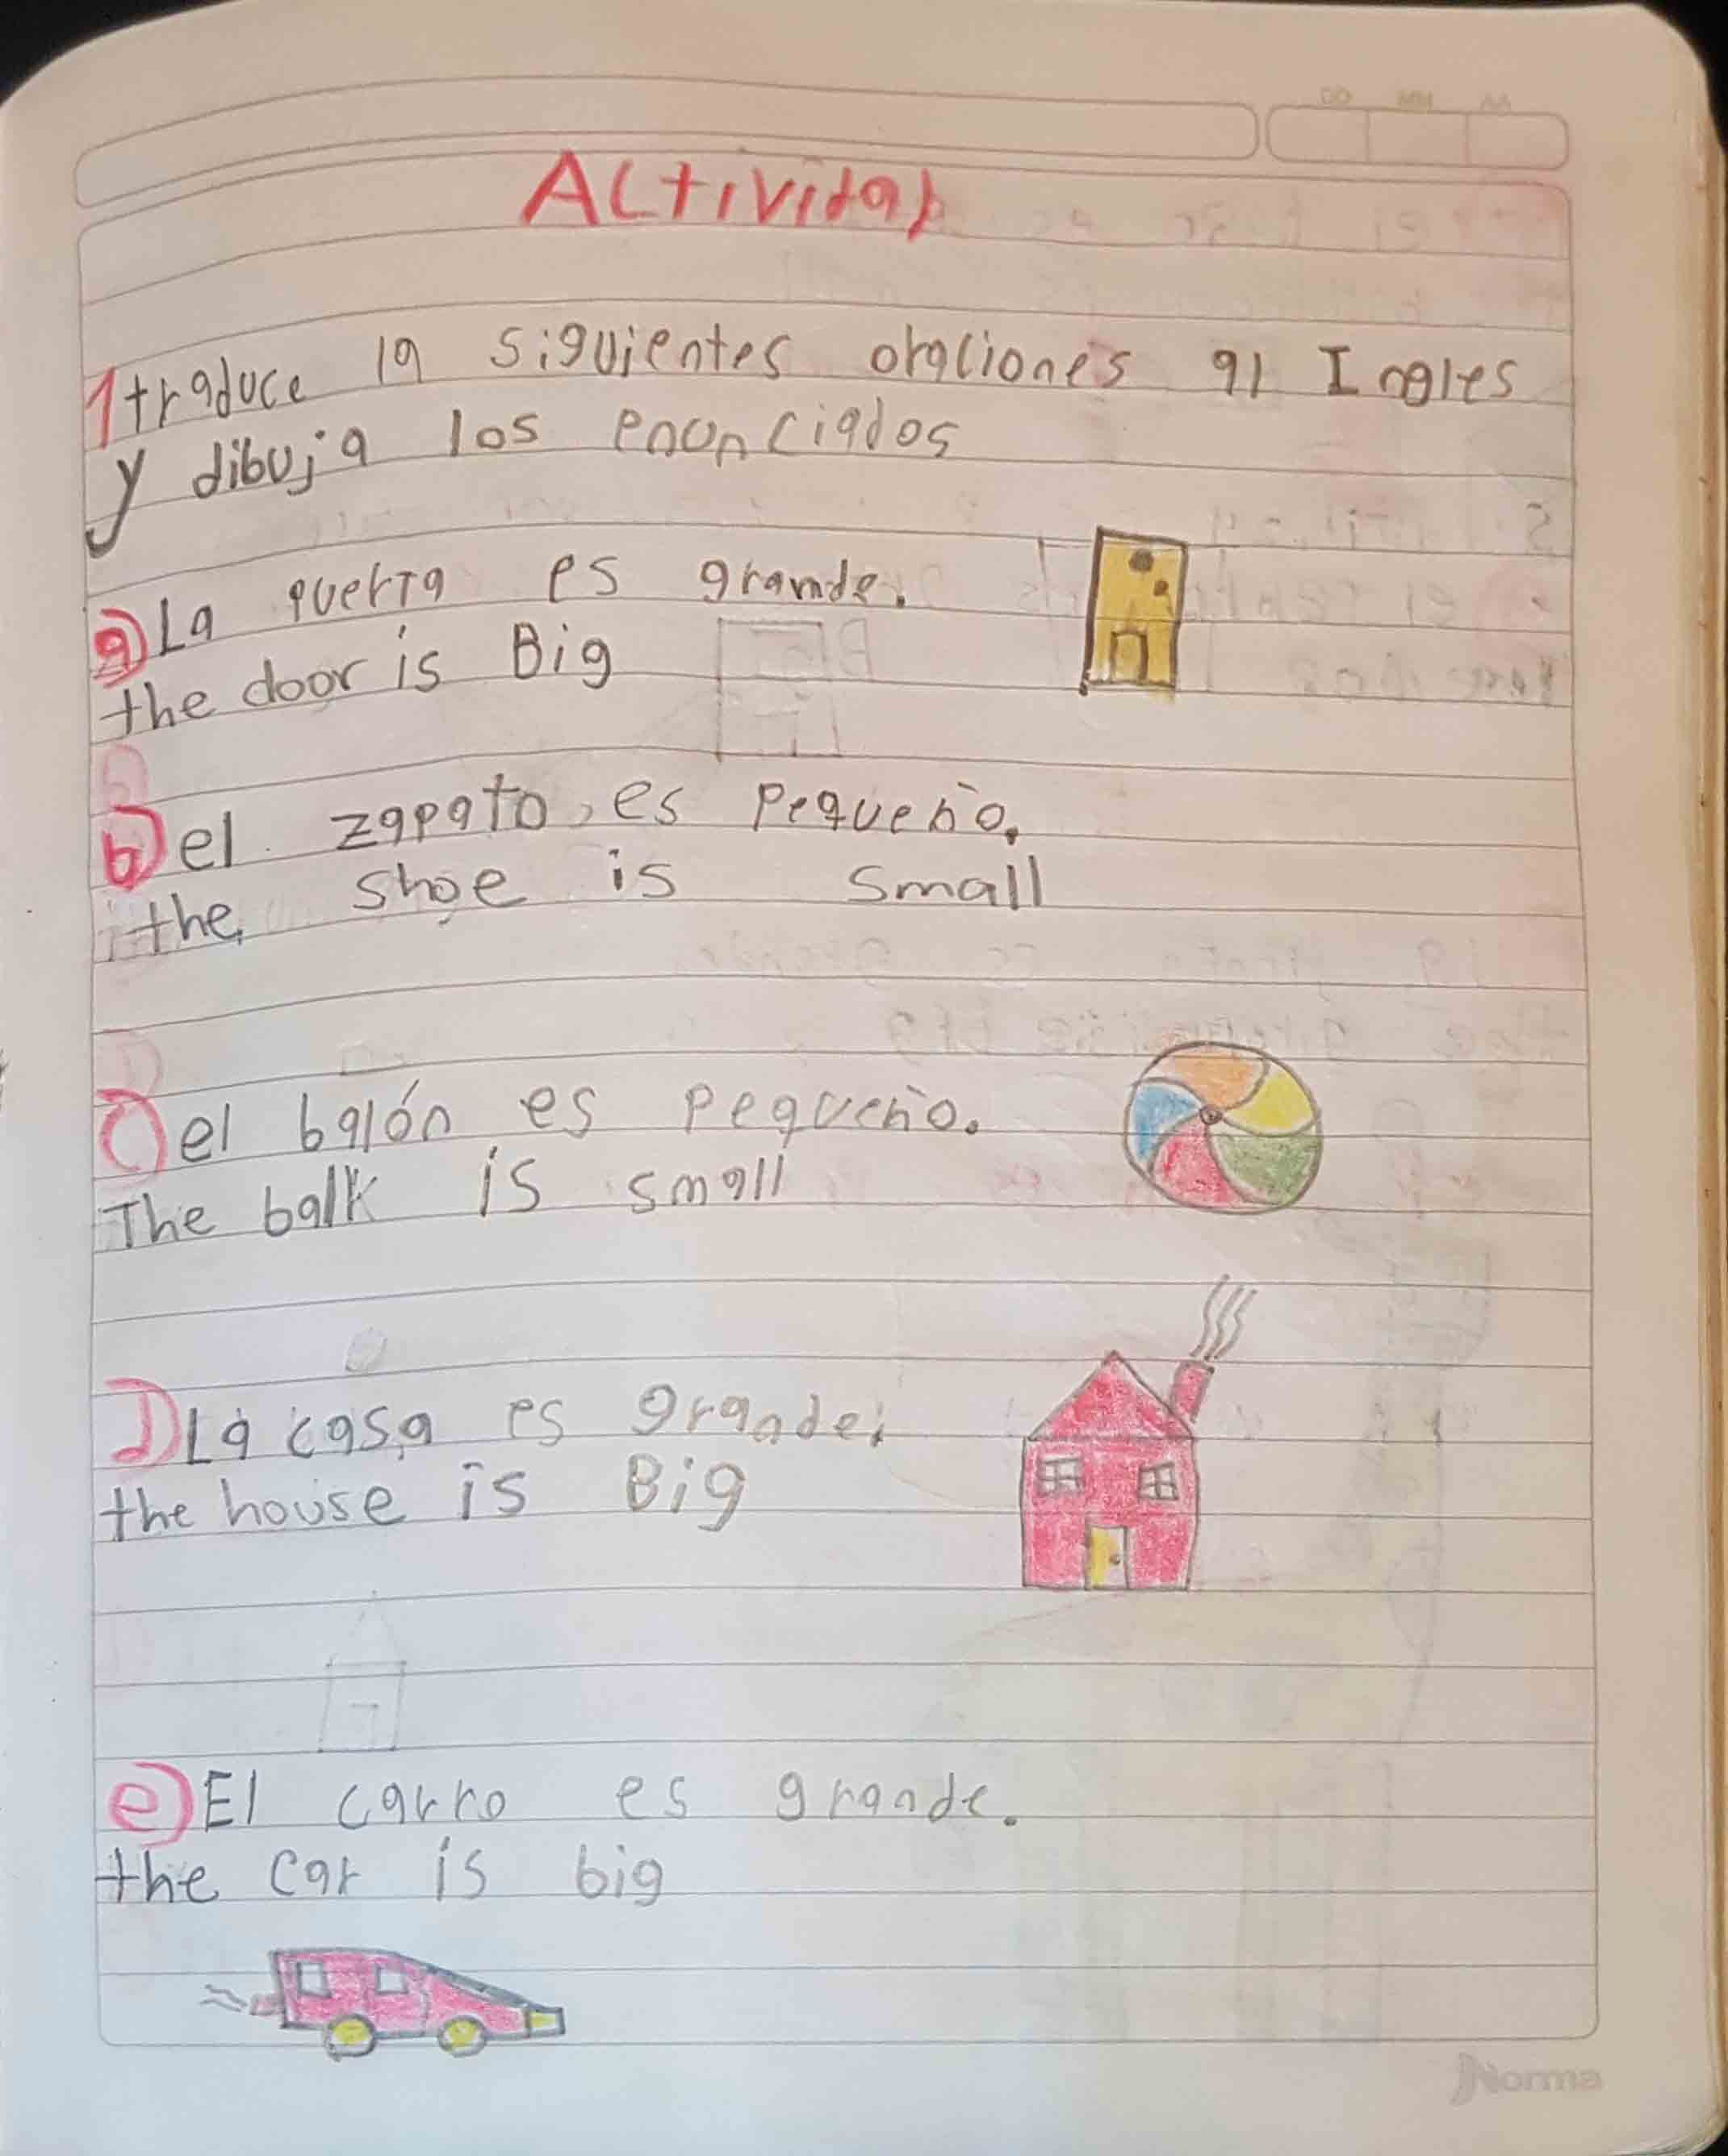 DD MM AA
Actividad
1 traduce la siguientes oraciones al Ingles
y dibuja los enunciados
a) La puerta es grande.
the door is Big
b) el zapato, es pequeño.
the shoe is small
C) el balón es pequeño.
The balk is small
D) La casa es grande.
the house is Big
e) El carro es grande.
the car is big
Norma